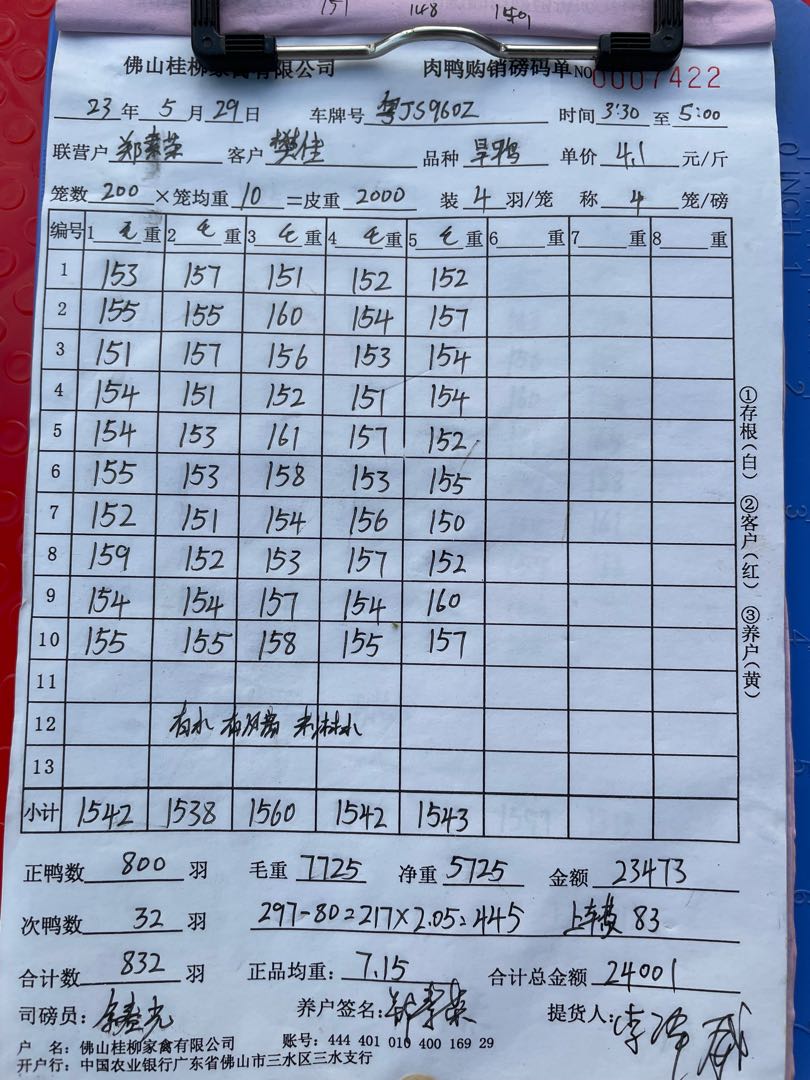 151 148 1549
佛山桂柳家禽有限公司 肉鸭购销磅码单 NO 0007422
23 年 5 月 29 日 车牌号 粤JS960Z 时间 3:30 至 5:00
联营户 客户 樊佳 品种 旱鸭 单价 4.1 元/斤
笼数 200 ×笼均重 10 =皮重 2000 装 4 羽/笼 称 4 笼/磅
编号 1 毛 重 2 毛 重 3 毛 重 4 毛 重 5 毛 重 6 重 7 重 8 重
1 153 157 151 152 152
2 155 155 160 154 157
3 151 157 156 153 154
4 154 151 152 151 154
5 154 153 161 157 152
6 155 153 158 153 155
7 152 151 154 156 150
8 159 152 153 157 152
9 154 154 157 154 160
10 155 155 158 155 157
11
12 有水
13
小计 1542 1538 1560 1542 1543
正鸭数 800 羽 毛重 7725 净重 5725 金额 23473
次鸭数 32 羽 297-80=217×2.05=445 上车费 83
合计数 832 羽 正品均重: 7.15 合计总金额 24001
司磅员: 养户签名: 提货人:
户 名: 佛山桂柳家禽有限公司 账号: 444 401 010 400 169 29
开户行: 中国农业银行广东省佛山市三水区三水支行
①存根(白) ②客户(红) ③养户(黄)